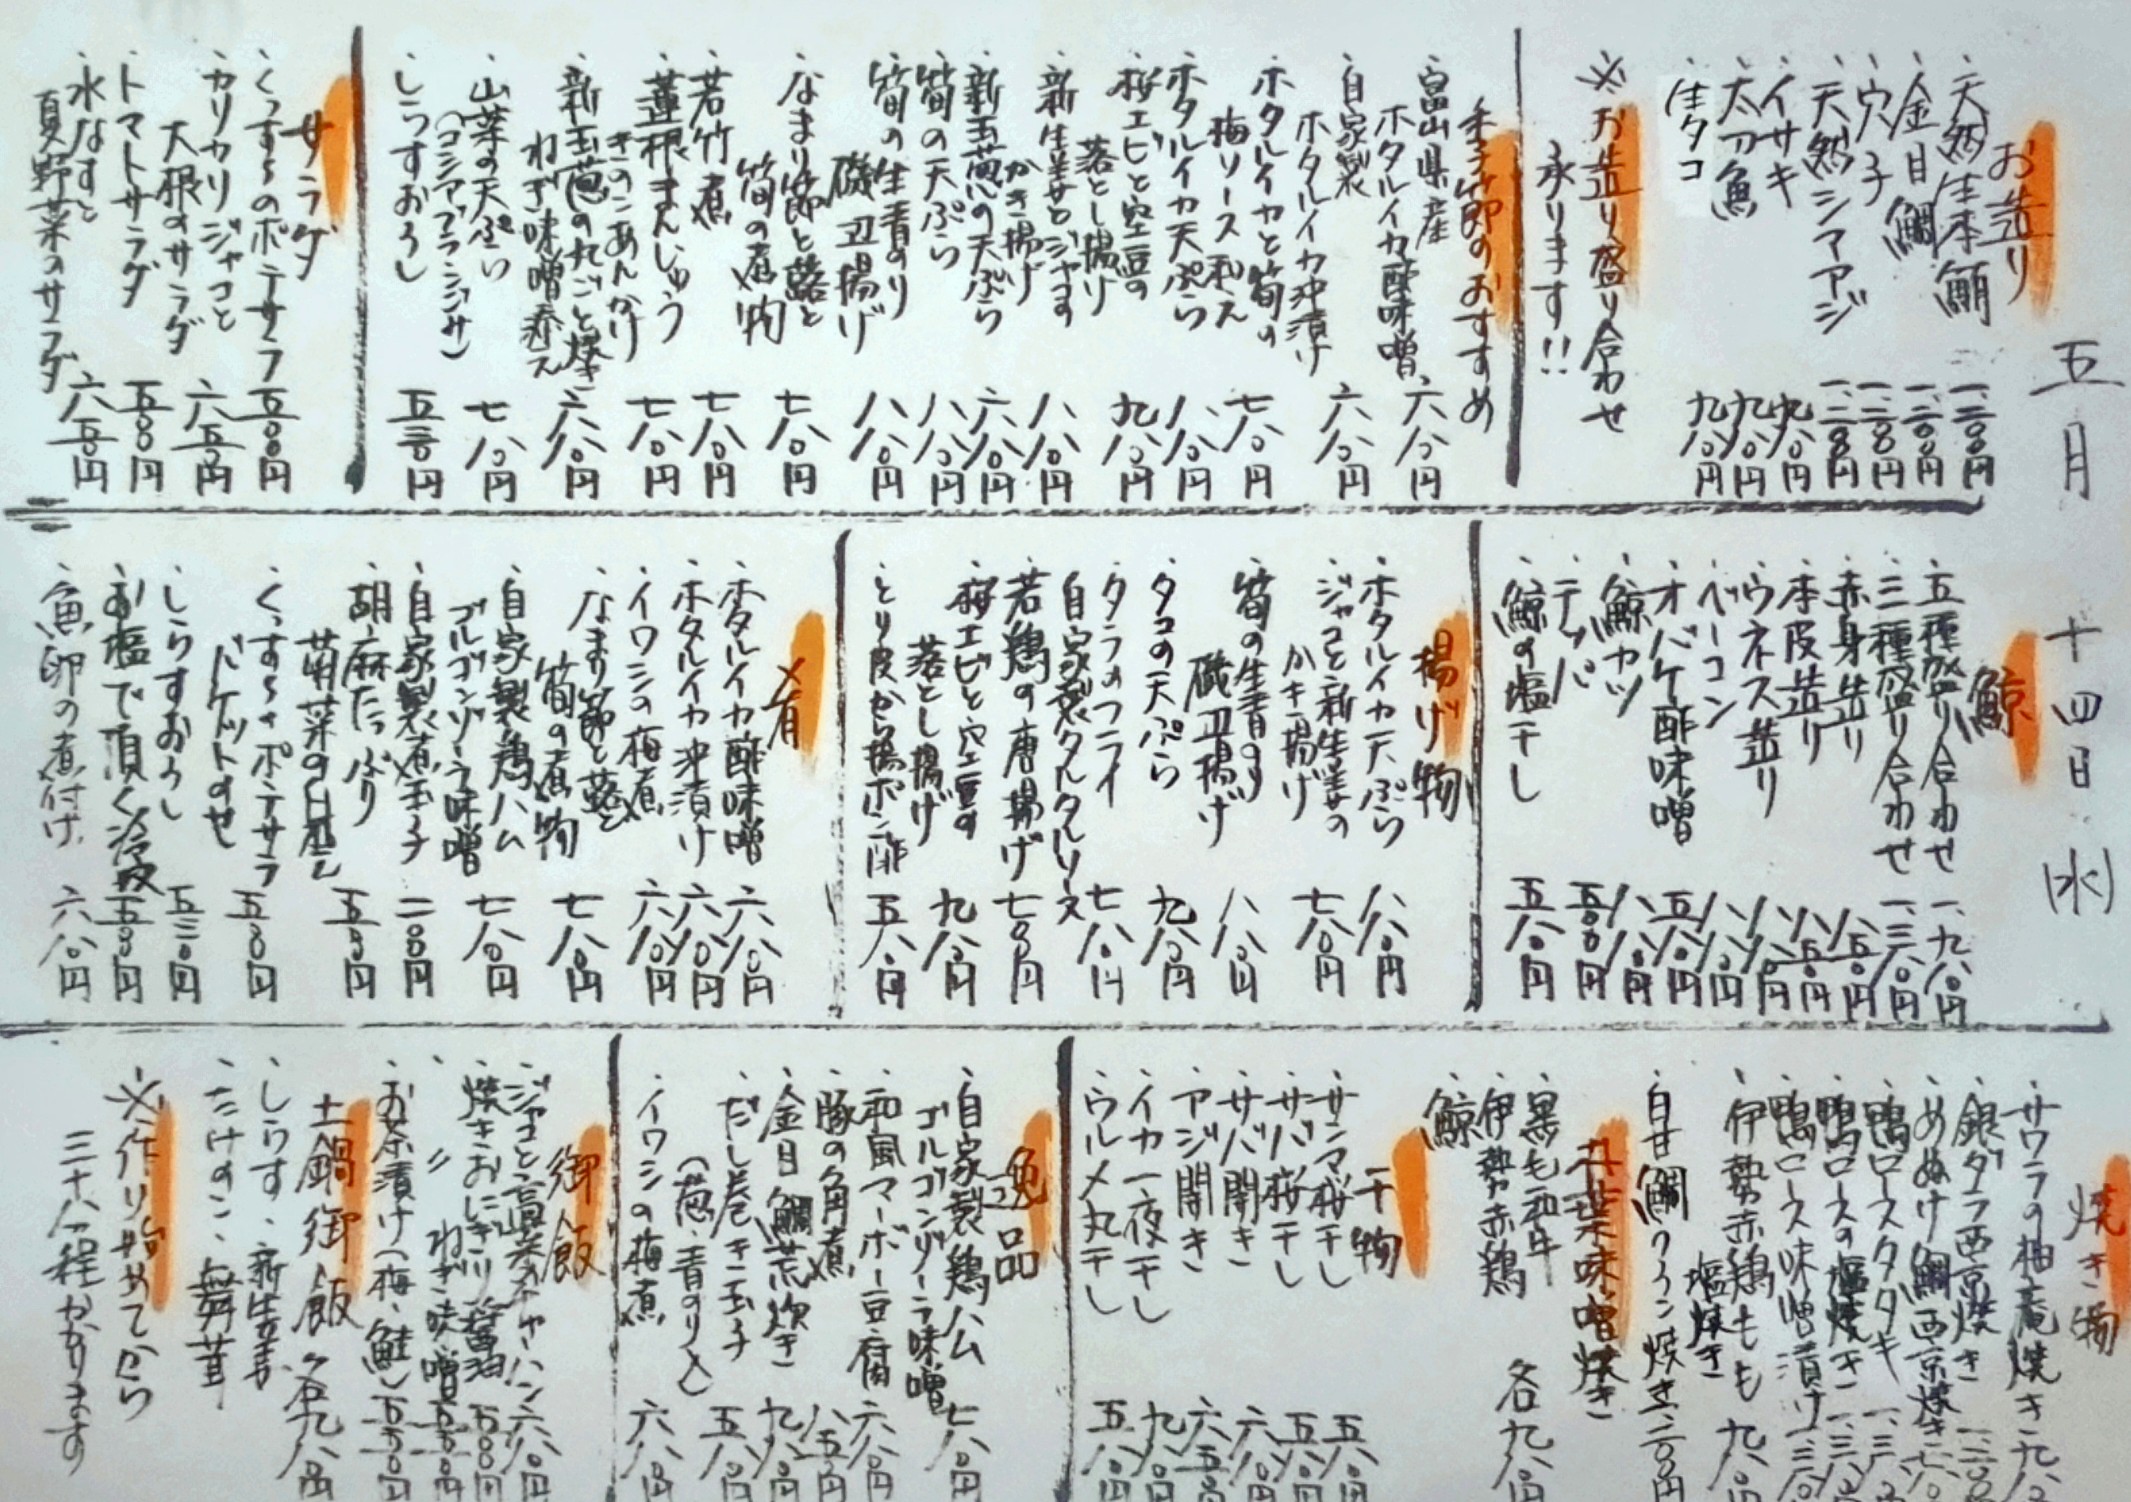 五月 十四日 (水)
お造り
・天然生本鮪 一、二〇〇円
・金目鯛 一、二〇〇円
・穴子 一、二〇〇円
・天然シマアジ 一、二〇〇円
・イサキ 九八〇円
・太刀魚 九八〇円
・生タコ 九八〇円
※お造り盛り合わせ
承ります!!
季節のおすすめ
・富山県産
ホタルイカ酢味噌 六八〇円
・自家製
ホタルイカ沖漬け 六八〇円
・ホタルイカと筍の
梅ソース和え 七八〇円
・ホタルイカ天ぷら 八八〇円
・桜エビと空豆の
落とし揚げ 九八〇円
・新生姜とジャコの
かき揚げ 八八〇円
・新玉葱の天ぷら 六八〇円
・筍の天ぷら 八八〇円
・筍の生青のり
磯辺揚げ 八八〇円
・なまり節と蕗と
筍の煮物 七八〇円
・若竹煮 七八〇円
・蓮根まんじゅう
きのこあんかけ 七八〇円
・新玉葱の丸ごと焼き
ねぎ味噌添え 六八〇円
・山菜の天ぷら
(コシアブラ・シジミ) 七八〇円
・しらすおろし 五三〇円
サラダ
・くっすぅのポテサラ 五〇〇円
・カリカリジャコと
大根のサラダ 六五〇円
・トマトサラダ 五〇〇円
・水なすと
夏野菜のサラダ 六五〇円
鯨
・五種盛り合わせ 一、九八〇円
・三種盛り合わせ 一、三八〇円
・赤身造り 八五〇円
・本皮造り 八五〇円
・ウネス造り 八八〇円
・ベーコン 八八〇円
・オバケ酢味噌 五八〇円
・鯨カツ 八八〇円
・テッパ 五〇〇円
・鯨の塩干し 五八〇円
揚げ物
・ホタルイカ天ぷら 八八〇円
・ジャコと新生姜の
かき揚げ 七八〇円
・筍の生青のり
磯辺揚げ 八八〇円
・タコの天ぷら 九八〇円
・タラのフライ
自家製タルタルソース 七八〇円
・若鶏の唐揚げ 七〇〇円
・桜エビと空豆の
落とし揚げ 九八〇円
・とり皮から揚ポン酢 五八〇円
肴
・ホタルイカ酢味噌 六八〇円
・ホタルイカ沖漬け 六八〇円
・イワシの梅煮 六八〇円
・なまり節と蕗と
筍の煮物 七八〇円
・自家製鶏ハム
ゴルゴンゾーラ味噌 七八〇円
・自家製煮玉子 二〇〇円
・胡麻たっぷり
菊菜の白和え 五〇〇円
・くっすぅポテサラ
バケットのせ 五八〇円
・しらすおろし 五三〇円
・お塩で頂く冷奴 五〇〇円
・魚卵の煮付け 六八〇円
焼き物
・サワラの柚庵焼き 九八〇
・銀ダラ西京焼き 一、二〇〇
・めぬけ鯛西京焼き
・鴨ロースタタキ 一、三八〇
・鴨ロースの塩焼き 一、三八〇
・鴨ロース味噌漬け 一、三八〇
・伊勢赤鶏もも
塩焼き 九八〇円
・白甘鯛のうろこ焼き
朴葉味噌焼き
・黒毛和牛
・伊勢赤鶏 各九八〇円
・鯨
干物
・サンマ桜干し 五八〇円
・サバ桜干し 五八〇円
・サバ開き 六八〇円
・アジ開き 六五〇円
・イカ一夜干し 九八〇円
・ウルメ丸干し 五八〇円
逸品
・自家製鶏ハム
ゴルゴンゾーラ味噌 七八〇円
・和風マーボー豆腐 六八〇円
・豚の角煮 八五〇円
・金目鯛荒炊き 九八〇円
・だし巻き玉子
(葱・青のり入) 五八〇円
・イワシの梅煮 六八〇円
御飯
・ジャコと高菜チャーハン 六八〇円
・焼きおにぎり醤油 五〇〇円
・〃 ねぎ味噌 五五〇円
・お茶漬け(梅・鮭) 五五〇円
土鍋御飯 各九八〇円
・しらす・新生姜
・たけのこ・舞茸
※作り始めてから
三十八分程かかります